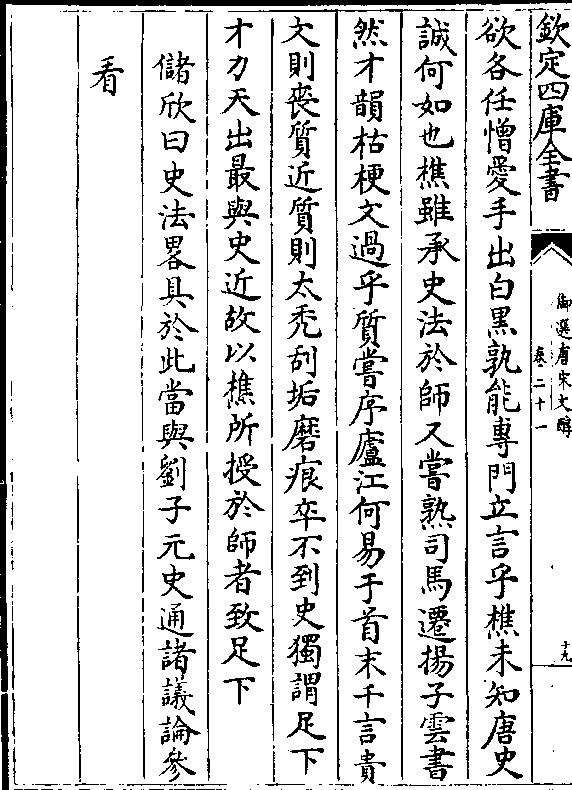 欽定四庫全書
御選唐宋文醇
卷二十一
十九
欲各任憎愛手出白黑孰能專門立言乎樵未知唐史
誠何如也樵雖承史法於師又嘗熟司馬遷揚子雲書
然才韻枯梗文過乎質嘗序廬江何易于首末千言貴
文則喪質近質則太禿刮垢磨痕卒不到史獨謂足下
才力天出最與史近故以樵所授於師者致足下
儲欣曰史法畧具於此當與劉子元史通諸議論參
看